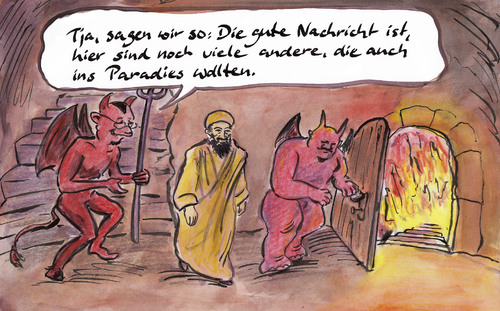 Tja, sagen wir so: Die gute Nachricht ist,
hier sind noch viele andere, die auch
ins Paradies wollten.